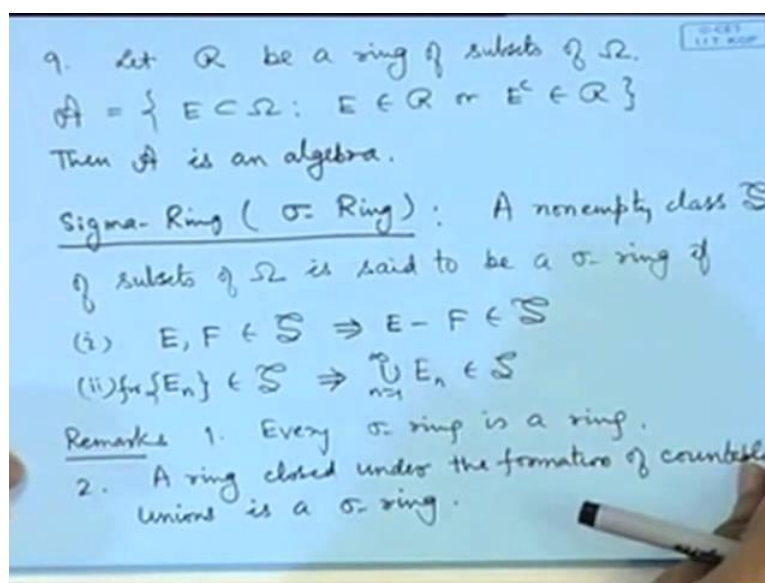 9. Let R be a ring of subsets of Ω.
A = { E ⊂ Ω : E ∈ R or Eᶜ ∈ R }
Then A is an algebra.
Sigma-Ring ( σ- Ring) : A nonempty class S
of subsets of Ω is said to be a σ- ring if
(i) E, F ∈ S ⇒ E - F ∈ S
(ii) for {Eₙ} ∈ S ⇒ ∞∪n=1 Eₙ ∈ S
Remarks 1. Every σ- ring is a ring.
2. A ring closed under the formation of countable
unions is a σ- ring.
I.I.T. KGP